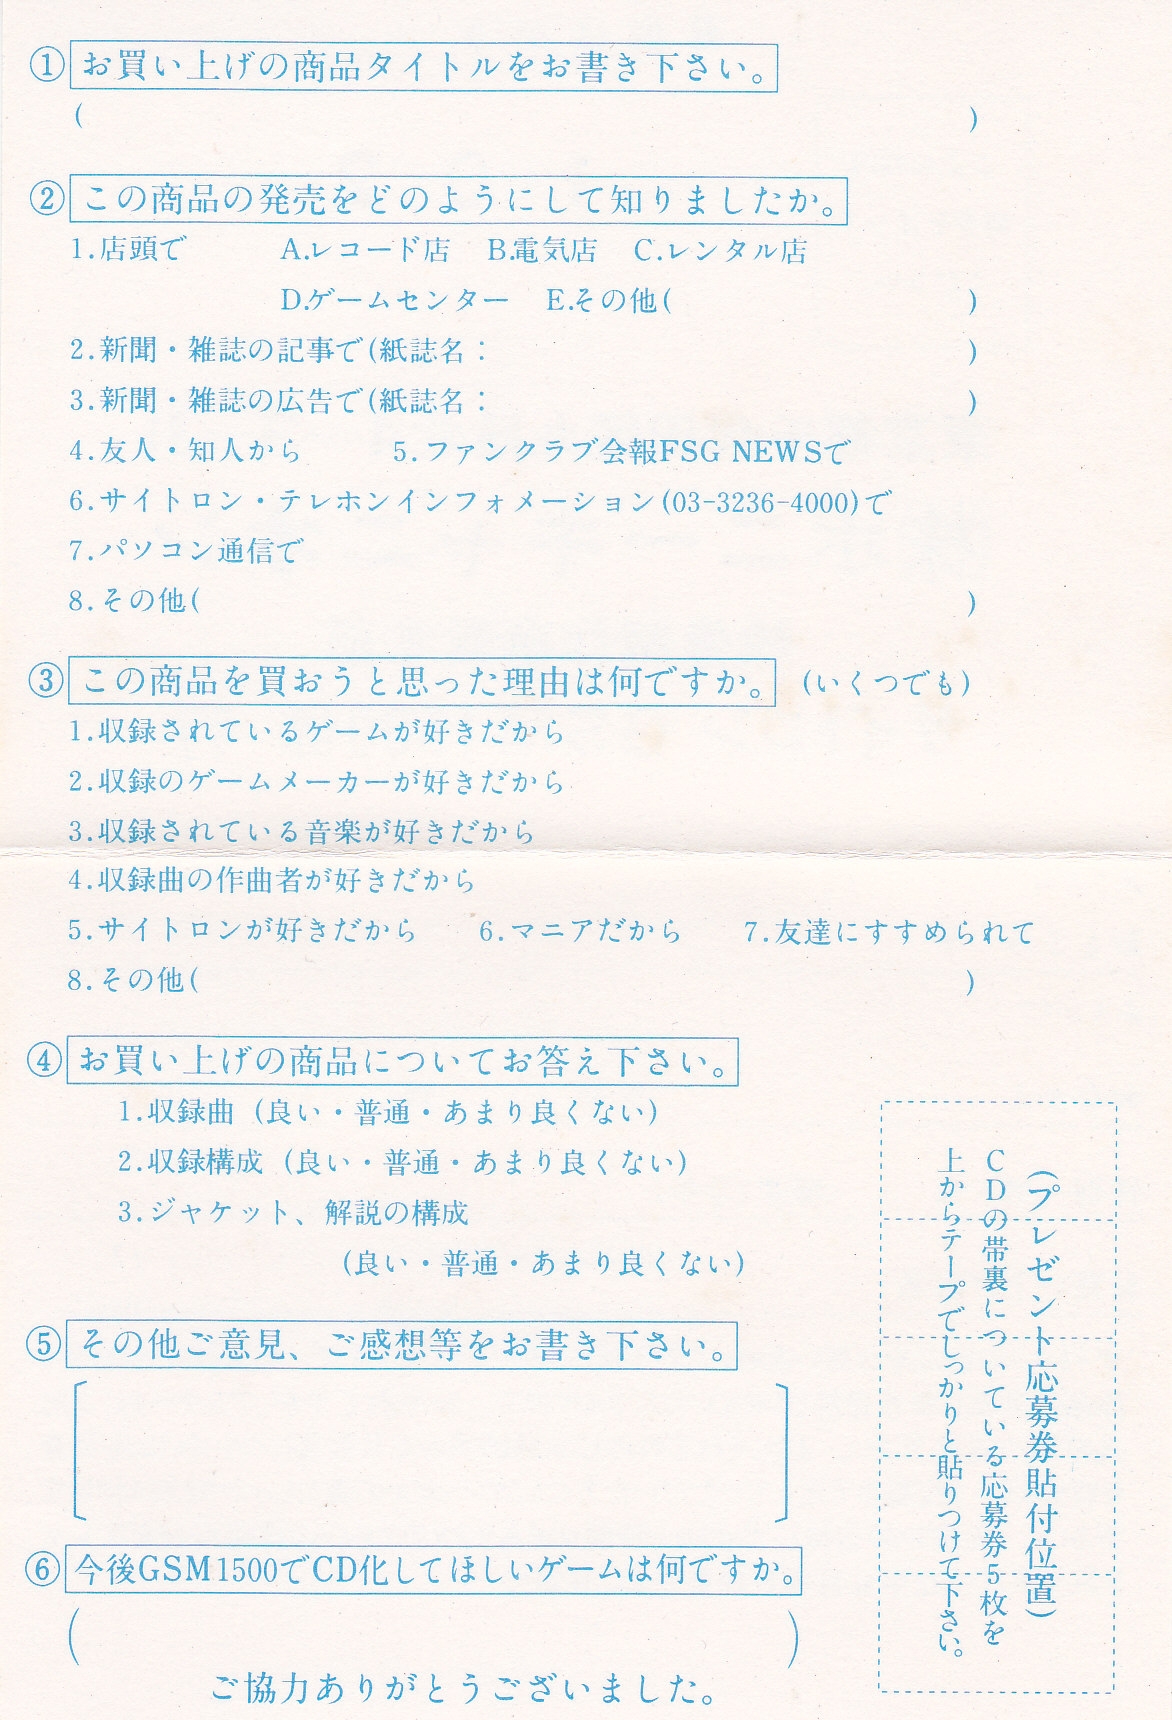 ① お買い上げの商品タイトルをお書き下さい。
( )
② この商品の発売をどのようにして知りましたか。
1.店頭で A.レコード店 B.電気店 C.レンタル店
D.ゲームセンター E.その他( )
2.新聞・雑誌の記事で(紙誌名: )
3.新聞・雑誌の広告で(紙誌名: )
4.友人・知人から 5.ファンクラブ会報FSG NEWSで
6.サイトロン・テレホンインフォメーション(03-3236-4000)で
7.パソコン通信で
8.その他( )
③ この商品を買おうと思った理由は何ですか。 (いくつでも)
1.収録されているゲームが好きだから
2.収録のゲームメーカーが好きだから
3.収録されている音楽が好きだから
4.収録曲の作曲者が好きだから
5.サイトロンが好きだから 6.マニアだから 7.友達にすすめられて
8.その他( )
④ お買い上げの商品についてお答え下さい。
1.収録曲 (良い・普通・あまり良くない)
2.収録構成 (良い・普通・あまり良くない)
3.ジャケット、解説の構成
(良い・普通・あまり良くない)
⑤ その他ご意見、ご感想等をお書き下さい。
[ ]
⑥ 今後GSM1500でCD化してほしいゲームは何ですか。
( )
ご協力ありがとうございました。
(プレゼント応募券貼付位置)
CDの帯裏についている応募券5枚を
上からテープでしっかりと貼りつけて下さい。